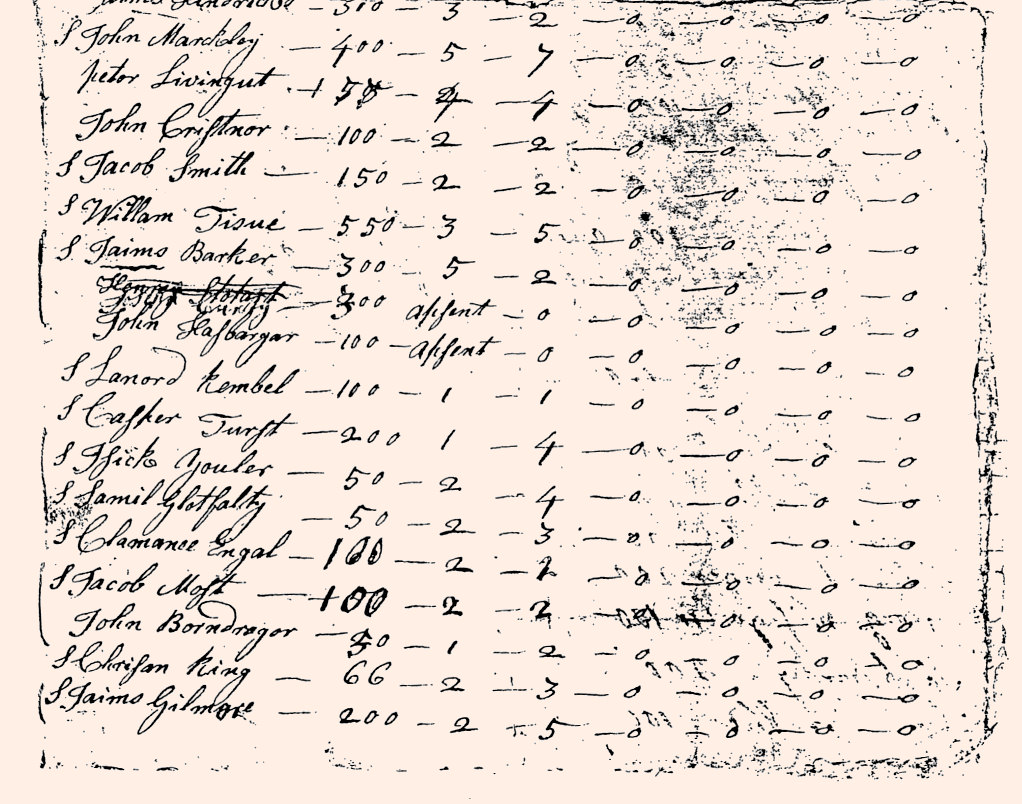 — 3 — 2 — 0 — 0 — 0 — 0
S John Marckley — 400 — 5 — 7 — 0 — 0 — 0 — 0
peter Livingut — 4 — 4 — 0 — 0 — 0 — 0
John Cristnor — 100 — 2 — 2 — 0 — 0 — 0 — 0
S Jacob Smith — 150 — 2 — 2 — 0 — 0 — 0 — 0
S Willam Tisue — 550 — 3 — 5 — 0 — 0 — 0 — 0
S Jaims Barker — 300 — 5 — 2 — 0 — 0 — 0 — 0
— 300 absent — 0 — 0 — 0 — 0 — 0
John Hasbargar — 100 — absent — 0 — 0 — 0 — 0 — 0
S Lanord Kembel — 100 — 1 — 1 — 0 — 0 — 0 — 0
S Casper Turst — 200 1 — 4 — 0 — 0 — 0 — 0
S Isick Youler — 50 — 2 — 4 — 0 — 0 — 0 — 0
S Samil Glotfalty — 50 — 2 — 3 — 0 — 0 — 0 — 0
S Clamance Engal — 100 — 2 — 2 — 0 — 0 — 0 — 0
S Jacob Most — 100 — 2 — 2 — 0 — 0 — 0
John Borndragor — 50 — 1 — 2 — 0 — 0 — 0 — 0
S Chrisan King — 66 — 2 — 3 — 0 — 0 — 0 — 0
S Jaims Gilmore — 200 — 2 — 5 — 0 — 0 — 0 — 0